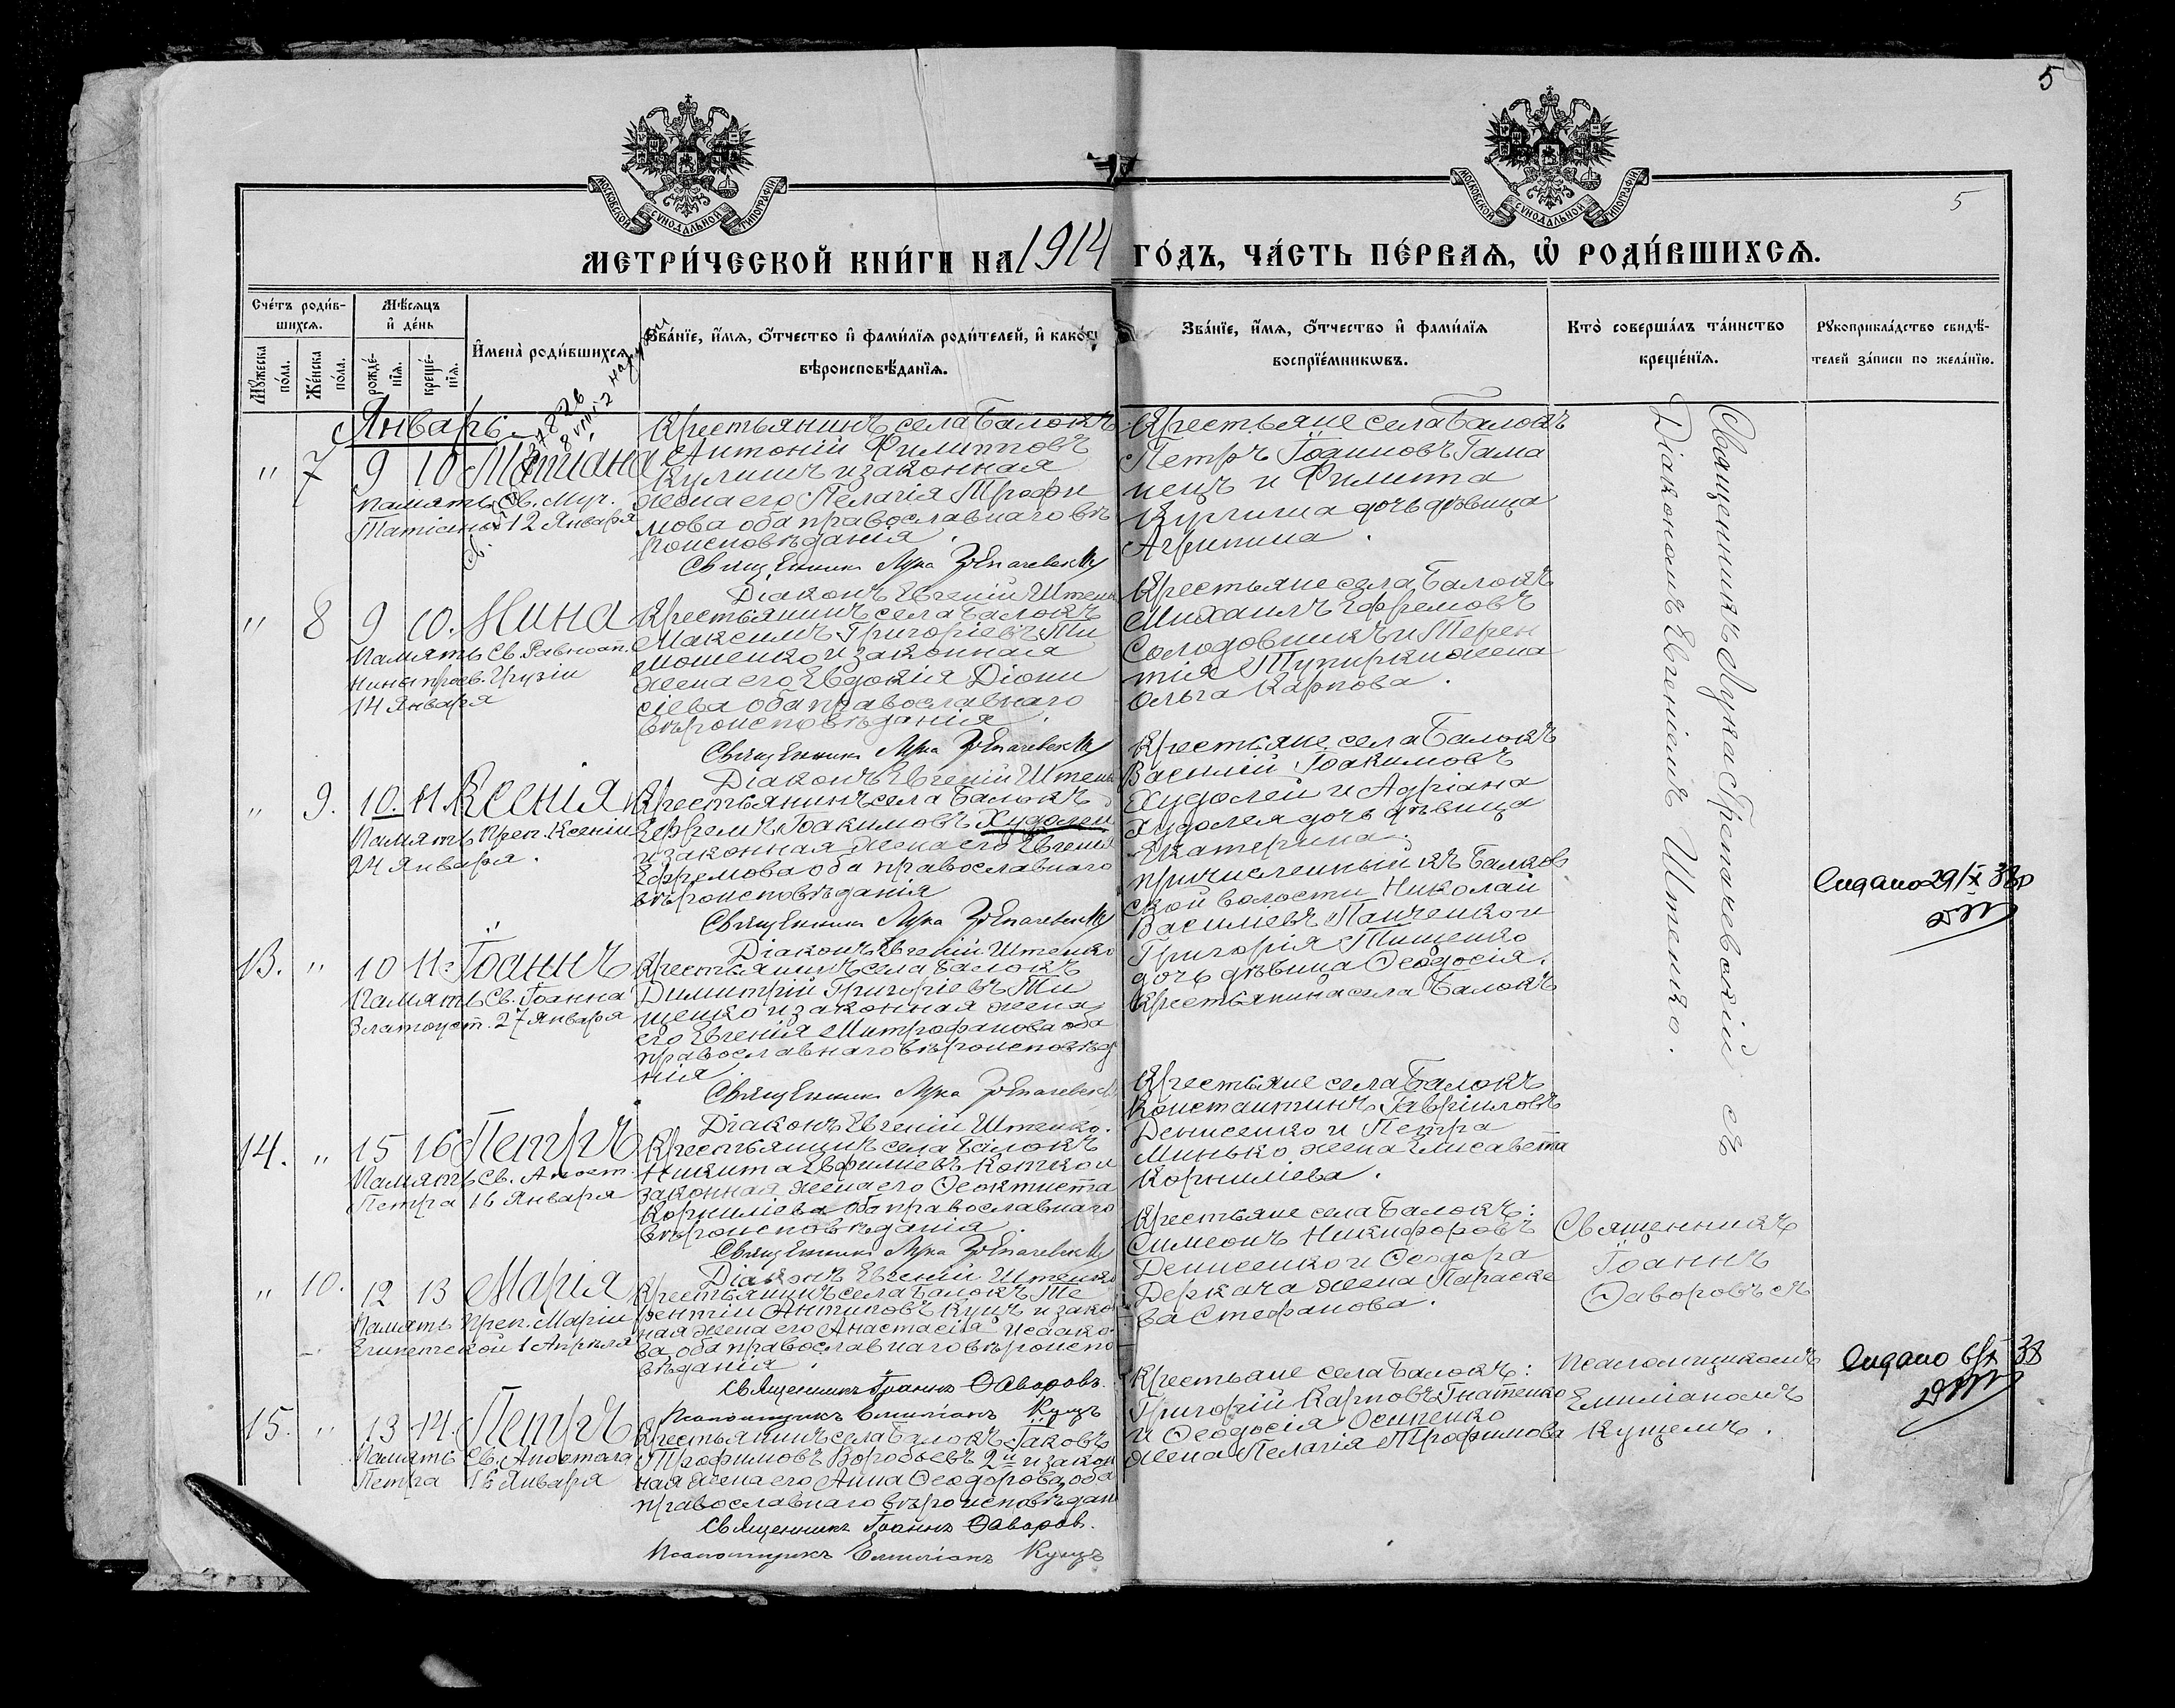 5
5
МОСКОВСКОЙ СУНОДАЛЬНОЙ ТИПОГРАФІИ
МОСКОВСКОЙ СУНОДАЛЬНОЙ ТИПОГРАФІИ
МЕТРИ́ЧЕСКОЙ КНИ́ГИ НА 1914 ГО́ДЪ, ЧА́СТЬ ПЕ́РВАѦ, Ѡ҆ РОДИ́ВШИХСѦ.
Сче́тъ роди́в-
шихсѧ.
Мꙋжеска по́ла.
Же́нска по́ла.
Мѣ́сѧцъ
и҆ де́нь
рожде́-
нїѧ.
креще́-
нїѧ.
И҆мена̀ роди́вшихсѧ.
Зва́нїе, и҆́мѧ, ѻ҆́тчество и҆ фами́лїѧ роди́телей, и҆ како́гѡ
вѣроисповѣ́данїѧ.
Зва́нїе, и҆́мѧ, ѻ҆́тчество и҆ фами́лїѧ
воспрїе́мникѡвъ.
Кто̀ соверша́лъ та́инство
креще́нїѧ.
Рꙋкоприкла́дство свидѣ́-
телей за́писи по жела́нїю.
Январь.
" 7 9 10 Татіана
Память Св. Муч.
Татіаны 12 Января
Крестьянинъ села Балокъ
Антоній Филипповъ
Кулишъ и законная
жена его Пелагія Трофи
мова оба православнаго вѣ
роисповѣданія.
Священникъ Лука
Діаконъ Евгеній Штенко
Крестьяне села Балокъ
Петръ Іоанновъ Гама
нецъ и Филиппа
Кулиша дочь дѣвица
Агрипина.
" 8 9 10. Нина
Память Св. Равноап.
Нины просв. Грузіи
14 Января
Крестьянинъ села Балокъ
Максимъ Григоріевъ Ти
мошенко и законная
жена его Евдокія Діони
сіева оба православнаго
вѣроисповѣданія.
Священникъ Лука
Діаконъ Евгеній Штенко
Крестьяне села Балокъ
Михаилъ Ефремовъ
Солодовникъ и Терен
тія Тупирки жена
Ольга Карпова.
" 9. 10. 11. Ксенія
Память Преп. Ксеніи
24 Января.
Крестьянинъ села Балокъ
Ефремъ Іоакимовъ Худолей
и законная жена его Евгенія
Ефремова оба православнаго
вѣроисповѣданія
Священникъ Лука
Діаконъ Евгеній Штенко
Крестьяне села Балокъ
Василій Іоакимовъ
Худолей и Адріана
Худолея дочь дѣвица
Екатерина.
13. " 10 11. Іоаннъ
Память Св. Іоанна
Златоуст. 27 Января
Крестьянинъ села Балокъ
Димитрій Григоріевъ Ти
щенко и законная жена
его Евгенія Митрофанова оба
православнаго вѣроисповѣда
нія.
Священникъ Лука
Діаконъ Евгеній Штенко.
причисленный къ Балков
ской волости Николай
Василіевъ Панченко и
Григорія Тищенко
дочь дѣвица Ѳеодосія.
Крестьянина села Балокъ
14. " 15 16 Петръ
Память Св. Апост.
Петра 16 Января
Крестьянинъ села Балокъ
Никита Евфиміевъ Котко и
законная жена его Ѳеоктиста
Корниліева оба православнаго
вѣроисповѣданія.
Священникъ Лука
Діаконъ Евгеній Штенко
Крестьяне села Балокъ
Константинъ Гавріиловъ
Денисенко и Петра
Минько жена Елисавета
Корниліева.
" 10. 12 13 Марія
Память Преп. Маріи
Египетской 1 Апрѣля
Крестьянинъ села Балокъ Те
рентій Антиповъ Кущъ и закон
ная жена его Анастасія Исаако
ва оба православнаго вѣроиспо
вѣданія.
Священникъ Іоаннъ Ѳаворовъ.
Псаломщикъ Емиліанъ Кущъ
Крестьяне села Балокъ:
Симеонъ Никифоровъ
Денисенко и Ѳеодора
Деркача жена Параске
ва Стефанова.
15. " 13 14. Петръ
Память Св. Апостола
Петра 16 Января
Крестьянинъ села Балокъ Іаковъ
Трофимовъ Воробьевъ 2й и закон
ная жена его Анна Ѳеодорова, оба
православнаго вѣроисповѣдан
Священникъ Іоаннъ Ѳаворов.
Псаломщикъ Емиліанъ Кущъ
Крестьяне села Балокъ:
Григорій Карповъ Гнатенко
и Ѳеодосія Осипенко
жена Пелагія Трофимова
Священникъ Лука съ
Діакономъ Евгеніемъ Штенко.
Священникъ
Іоаннъ
Ѳаворовъ съ
псаломщикомъ
Емиліаномъ
Кущемъ.